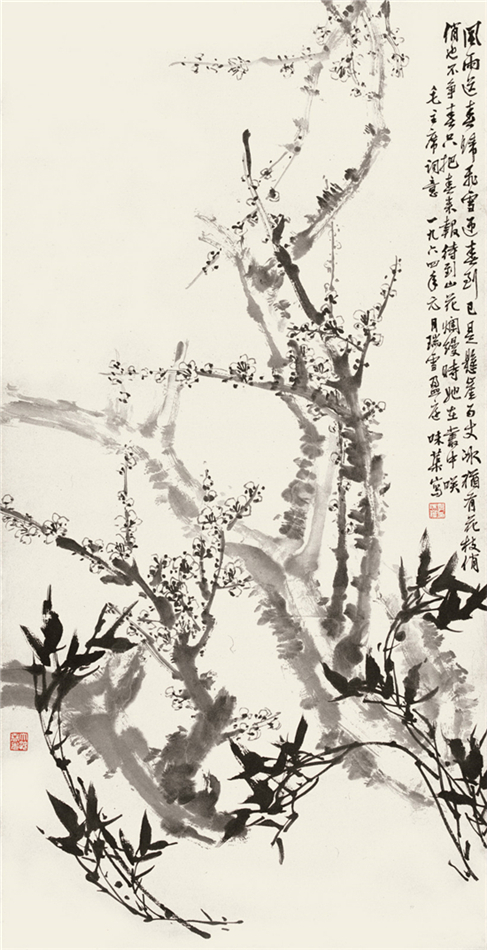 風雨送春歸飛雪迎春到已是懸崖百丈冰猶有花枝俏
俏也不争春只把春來報待到山花爛縵時她在叢中咲
毛主席詞意 一九六四年元月瑞雪盈庭 味蕖寫